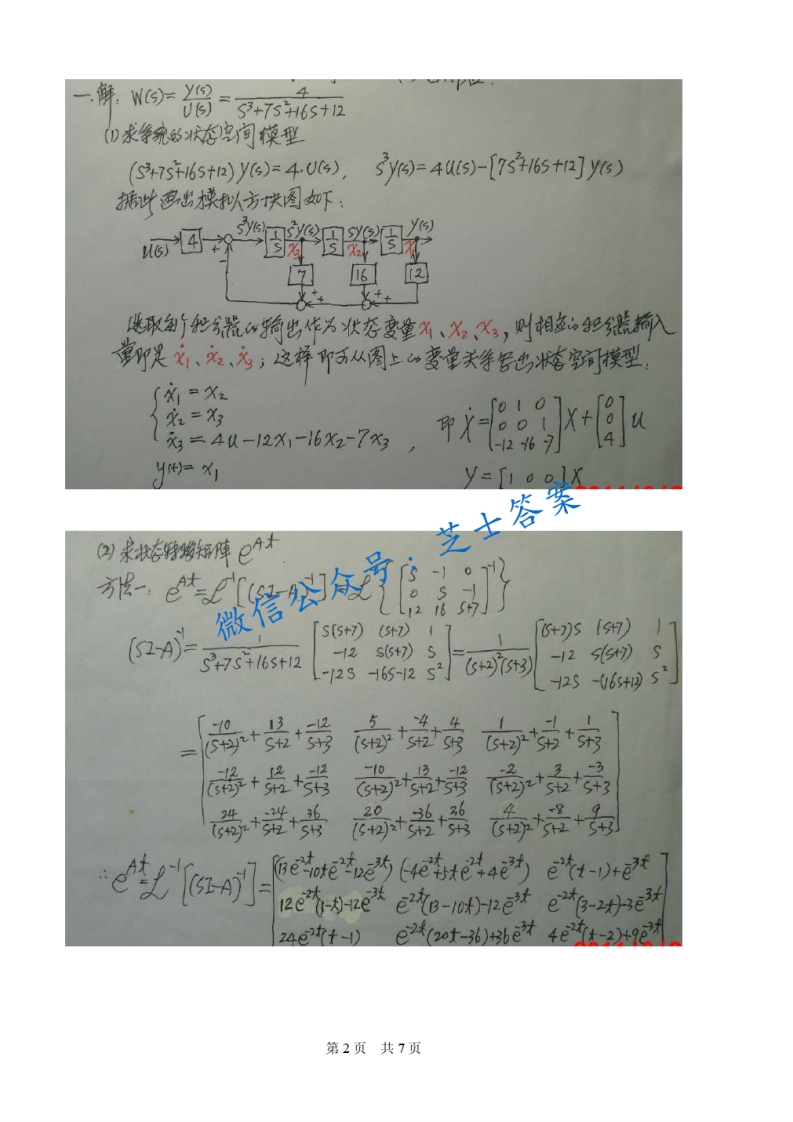 一.解: W(s)= Y(s)/U(s) = 4/(s³+7s²+16s+12)
(1)求系统的状态空间模型
(s³+7s²+16s+12)Y(s)=4·U(s), s³Y(s)=4U(s)-[7s²+16s+12]Y(s)
据此画出模拟方块图如下:
s³Y(s) s²Y(s) sY(s) Y(s)
U(s) 4 + 1/s x₃ 1/s x₂ 1/s x₁
- 7 16 12
+ + + +
选取每个积分器的输出作为状态变量x₁、x₂、x₃,则相应的积分器输入
量即是ẋ₁、ẋ₂、ẋ₃;这样即可从图上的变量关系写出状态空间模型:
ẋ₁=x₂
ẋ₂=x₃
ẋ₃=4u-12x₁-16x₂-7x₃, 即 Ẋ=[0 1 0; 0 0 1; -12 -16 -7]X+[0; 0; 4]u
y(t)=x₁ Y=[1 0 0]X
微信公众号:芝士答案
(2)求状态转移矩阵 e^{At}
方法一: e^{At}=ℒ⁻¹[(SI-A)⁻¹]=ℒ⁻¹{[s -1 0; 0 s -1; 12 16 s+7]⁻¹}
(SI-A)⁻¹= 1/(s³+7s²+16s+12) [s(s+7) (s+7) 1; -12 s(s+7) s; -12s -16s-12 s²] = 1/((s+2)²(s+3)) [(s+7)s (s+7) 1; -12 s(s+7) s; -12s -(16s+12) s²]
= [-10/(s+2)²+13/(s+2)+-12/(s+3) 5/(s+2)²+-4/(s+2)+4/(s+3) 1/(s+2)²+-1/(s+2)+1/(s+3)
-12/(s+2)²+12/(s+2)+-12/(s+3) -10/(s+2)²+13/(s+2)+-12/(s+3) -2/(s+2)²+3/(s+2)+-3/(s+3)
24/(s+2)²+-24/(s+2)+36/(s+3) 20/(s+2)²+-36/(s+2)+36/(s+3) 4/(s+2)²+-8/(s+2)+9/(s+3)]
∴ e^{At}=ℒ⁻¹[(SI-A)⁻¹]= [(13e^{-2t}-10te^{-2t}-12e^{-3t}) (-4e^{-2t}+5te^{-2t}+4e^{-3t}) e^{-2t}(t-1)+e^{-3t}
12e^{-2t}(1-t)-12e^{-3t} e^{-2t}(13-10t)-12e^{-3t} e^{-2t}(3-2t)-3e^{-3t}
24e^{-2t}(t-1) e^{-2t}(20t-36)+36e^{-3t} 4e^{-2t}(t-2)+9e^{-3t}]
第 2 页 共 7 页